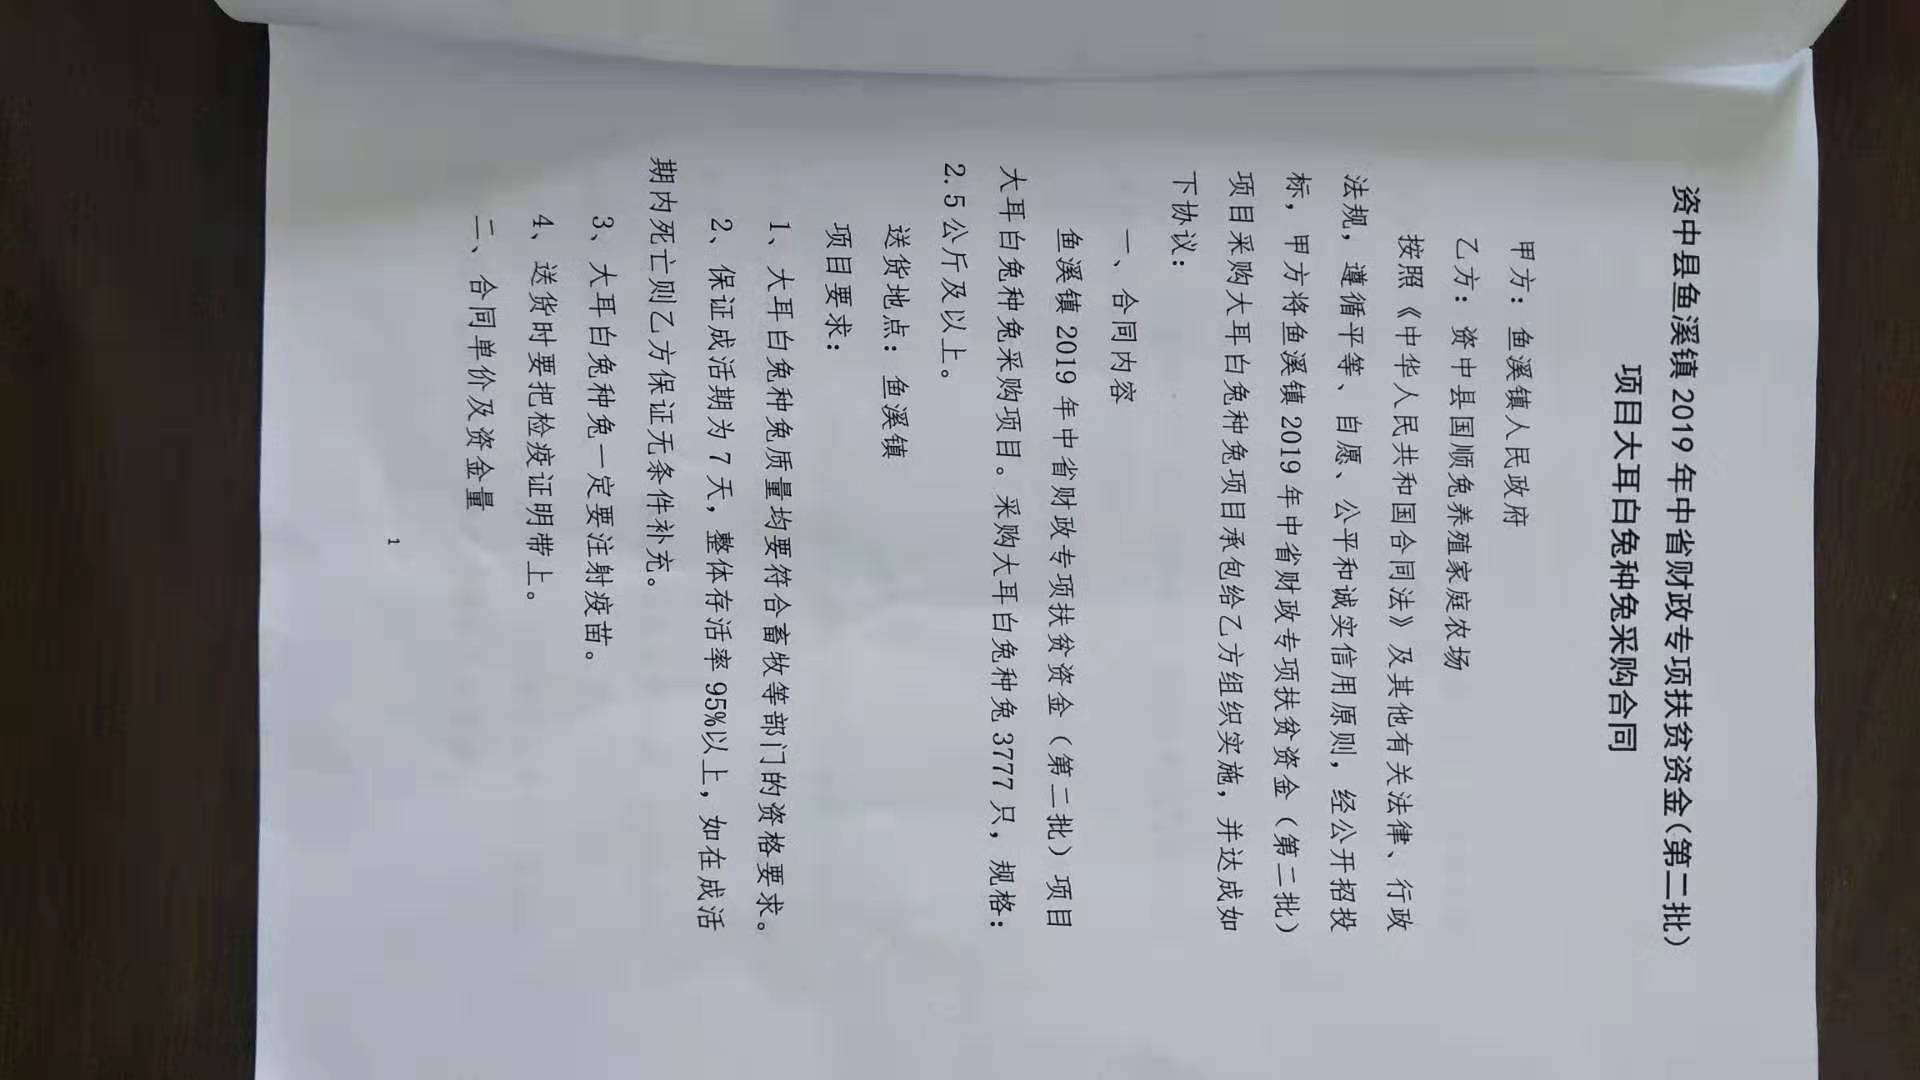 资中县鱼溪镇2019年中省财政专项扶贫资金(第二批)
项目大耳白兔种兔采购合同
甲方：鱼溪镇人民政府
乙方：资中县国顺兔养殖家庭农场
按照《中华人民共和国合同法》及其他有关法律、行政
法规，遵循平等、自愿、公平和诚实信用原则，经公开招投
标，甲方将鱼溪镇2019年中省财政专项扶贫资金（第二批）
项目采购大耳白兔种兔项目承包给乙方组织实施，并达成如
下协议：
一、合同内容
鱼溪镇2019年中省财政专项扶贫资金（第二批）项目
大耳白兔种兔采购项目。采购大耳白兔种兔3777只，规格：
2.5公斤及以上。
送货地点：鱼溪镇
项目要求：
1、大耳白兔种兔质量均要符合畜牧等部门的资格要求。
2、保证成活期为7天，整体存活率95%以上，如在成活
期内死亡则乙方保证无条件补充。
3、大耳白兔种兔一定要注射疫苗。
4、送货时要把检疫证明带上。
二、合同单价及资金量
1